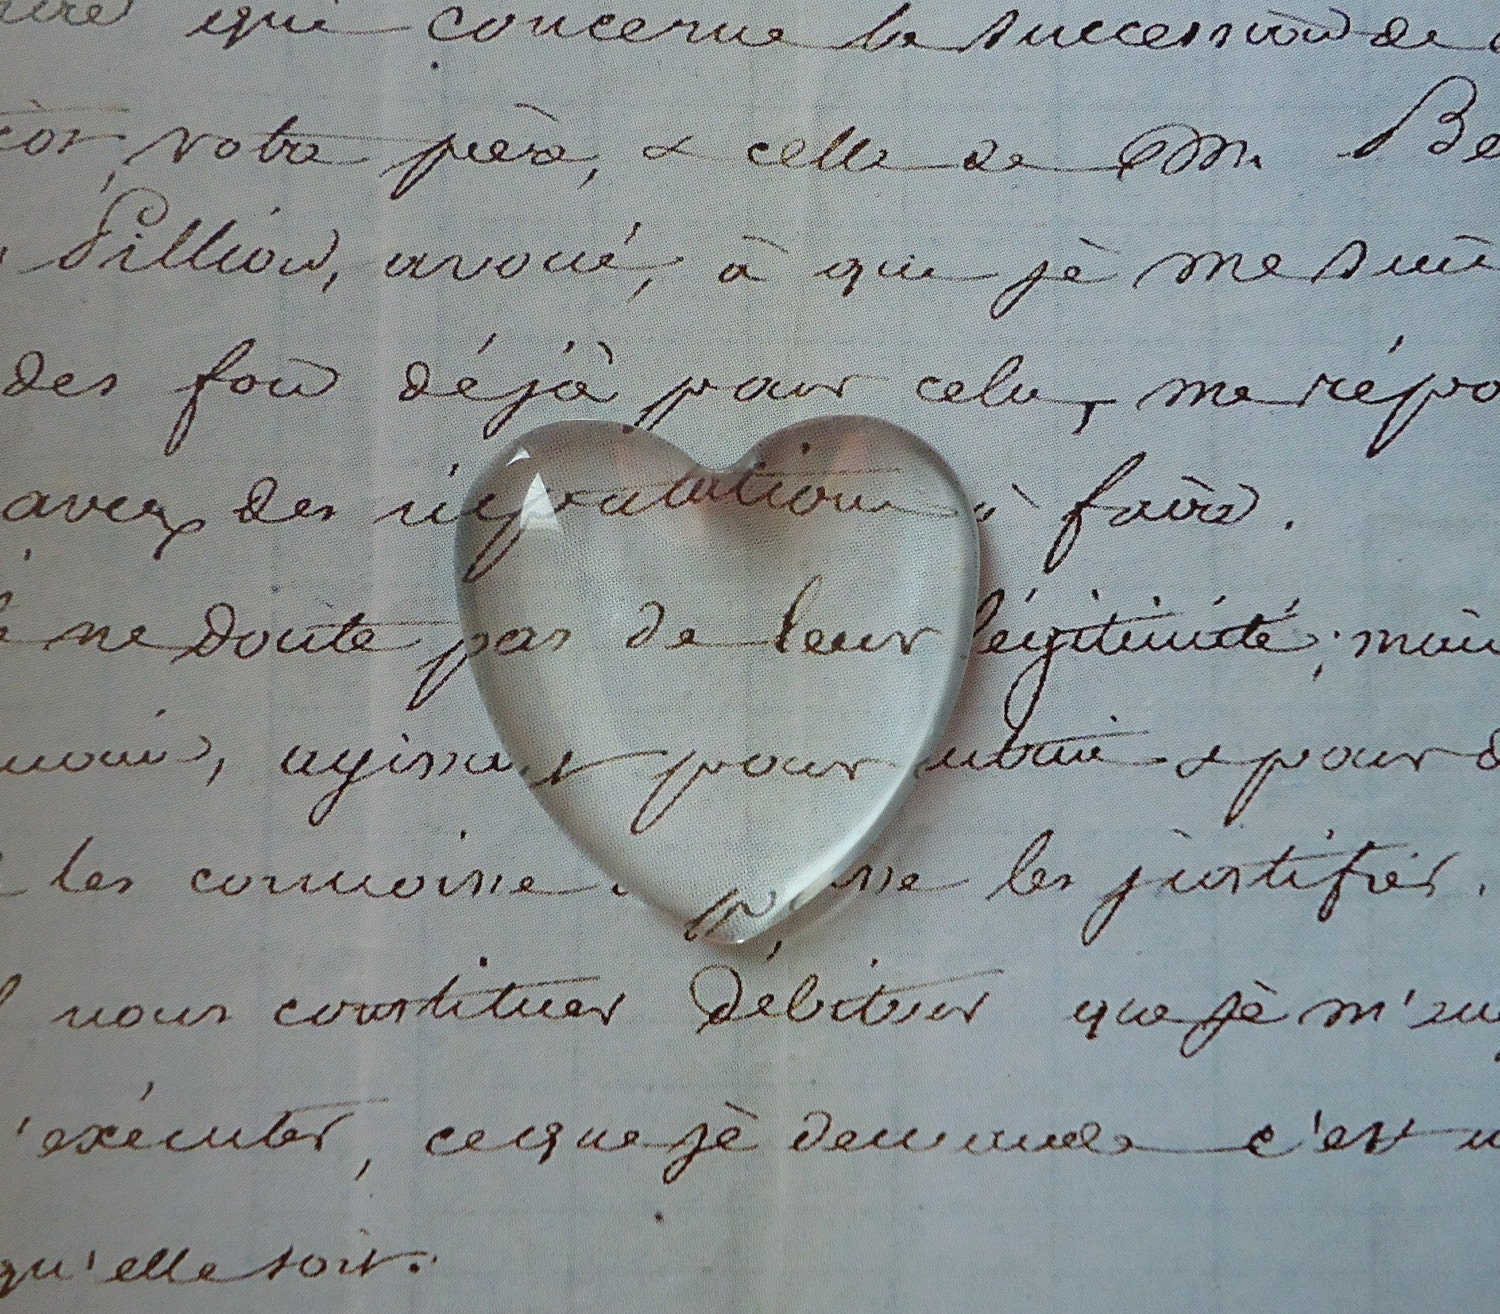 qui concerne la succession de
votre père, & celle de M. Be
Pillion, avoué, à qui je me suis
des fois déjà pour cela, me répo
avez des réparations à faire.
ne doute pas de leur légitimité; mais
moi, agissant pour autrui & pour
les connoisse puisse les justifier.
nous constituer Débiteur que je m'en
exécuter, ce que je demande c'est
qu'elle soit.